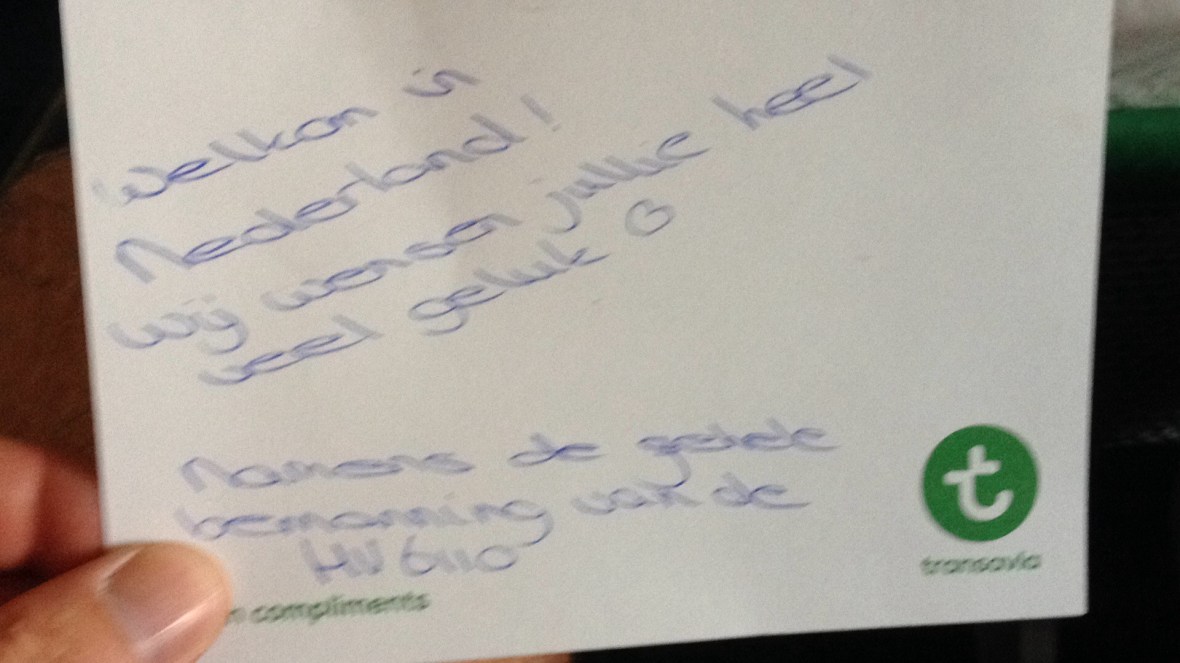 Welkom in
Nederland!
wij wensen jullie heel
veel geluk
Namens de gehele
bemanning van de
HV 6110
compliments
transavia